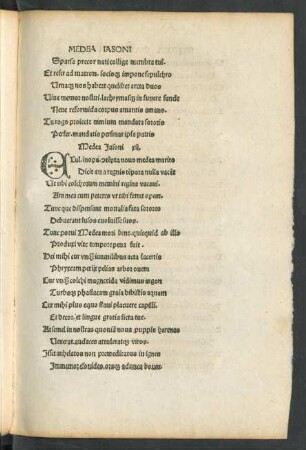 MEDEA IASONI
Sparsa precor nati collige membra tui.
Et refer ad matrem. sociosq; impone sepulchro
Urnaq; nos habeat quālibet arcta duos
Uiue memor nostri. lachrymasq; in funere funde
Neue reformida corpus amantis amans.
Tu rogo proiectæ nimium mandata sororis
Perfer. mandatis perfruar ipsa patris
Medea Jasoni xij.
Exul. inops. cōtēpta nouo medea marito
Dicit an a regnis tēpora nulla vacāt
At tibi colchorum memini regina vacaui.
Ars mea cum peteres vt tibi ferret opem.
Tunc que dispensant mortalia fata sorores
Debuerant fusos euoluisse
Tunc potui Medea mori bene. quicquid ab illo
Produxi vite tempore pena fuit.
Hei mihi cur vnq̄ iuuenilibus acta lacertis
Phryxeam petijt pelias arbor ouem
Cur vnq̄ colchi magnetida vidimus argon
Turbaq; phasiacam graia bibistis aquam
Cur mihi plus equo flaui placuere capilli.
Et decor. et lingue gratia ficta tue.
Aut semel in nostras quoniā noua puppis harenas
Venerat. audaces attuleratq; viros.
Isset anhelatos non premeditatus in ignes
Immemor esonides. oraq; adunca boum